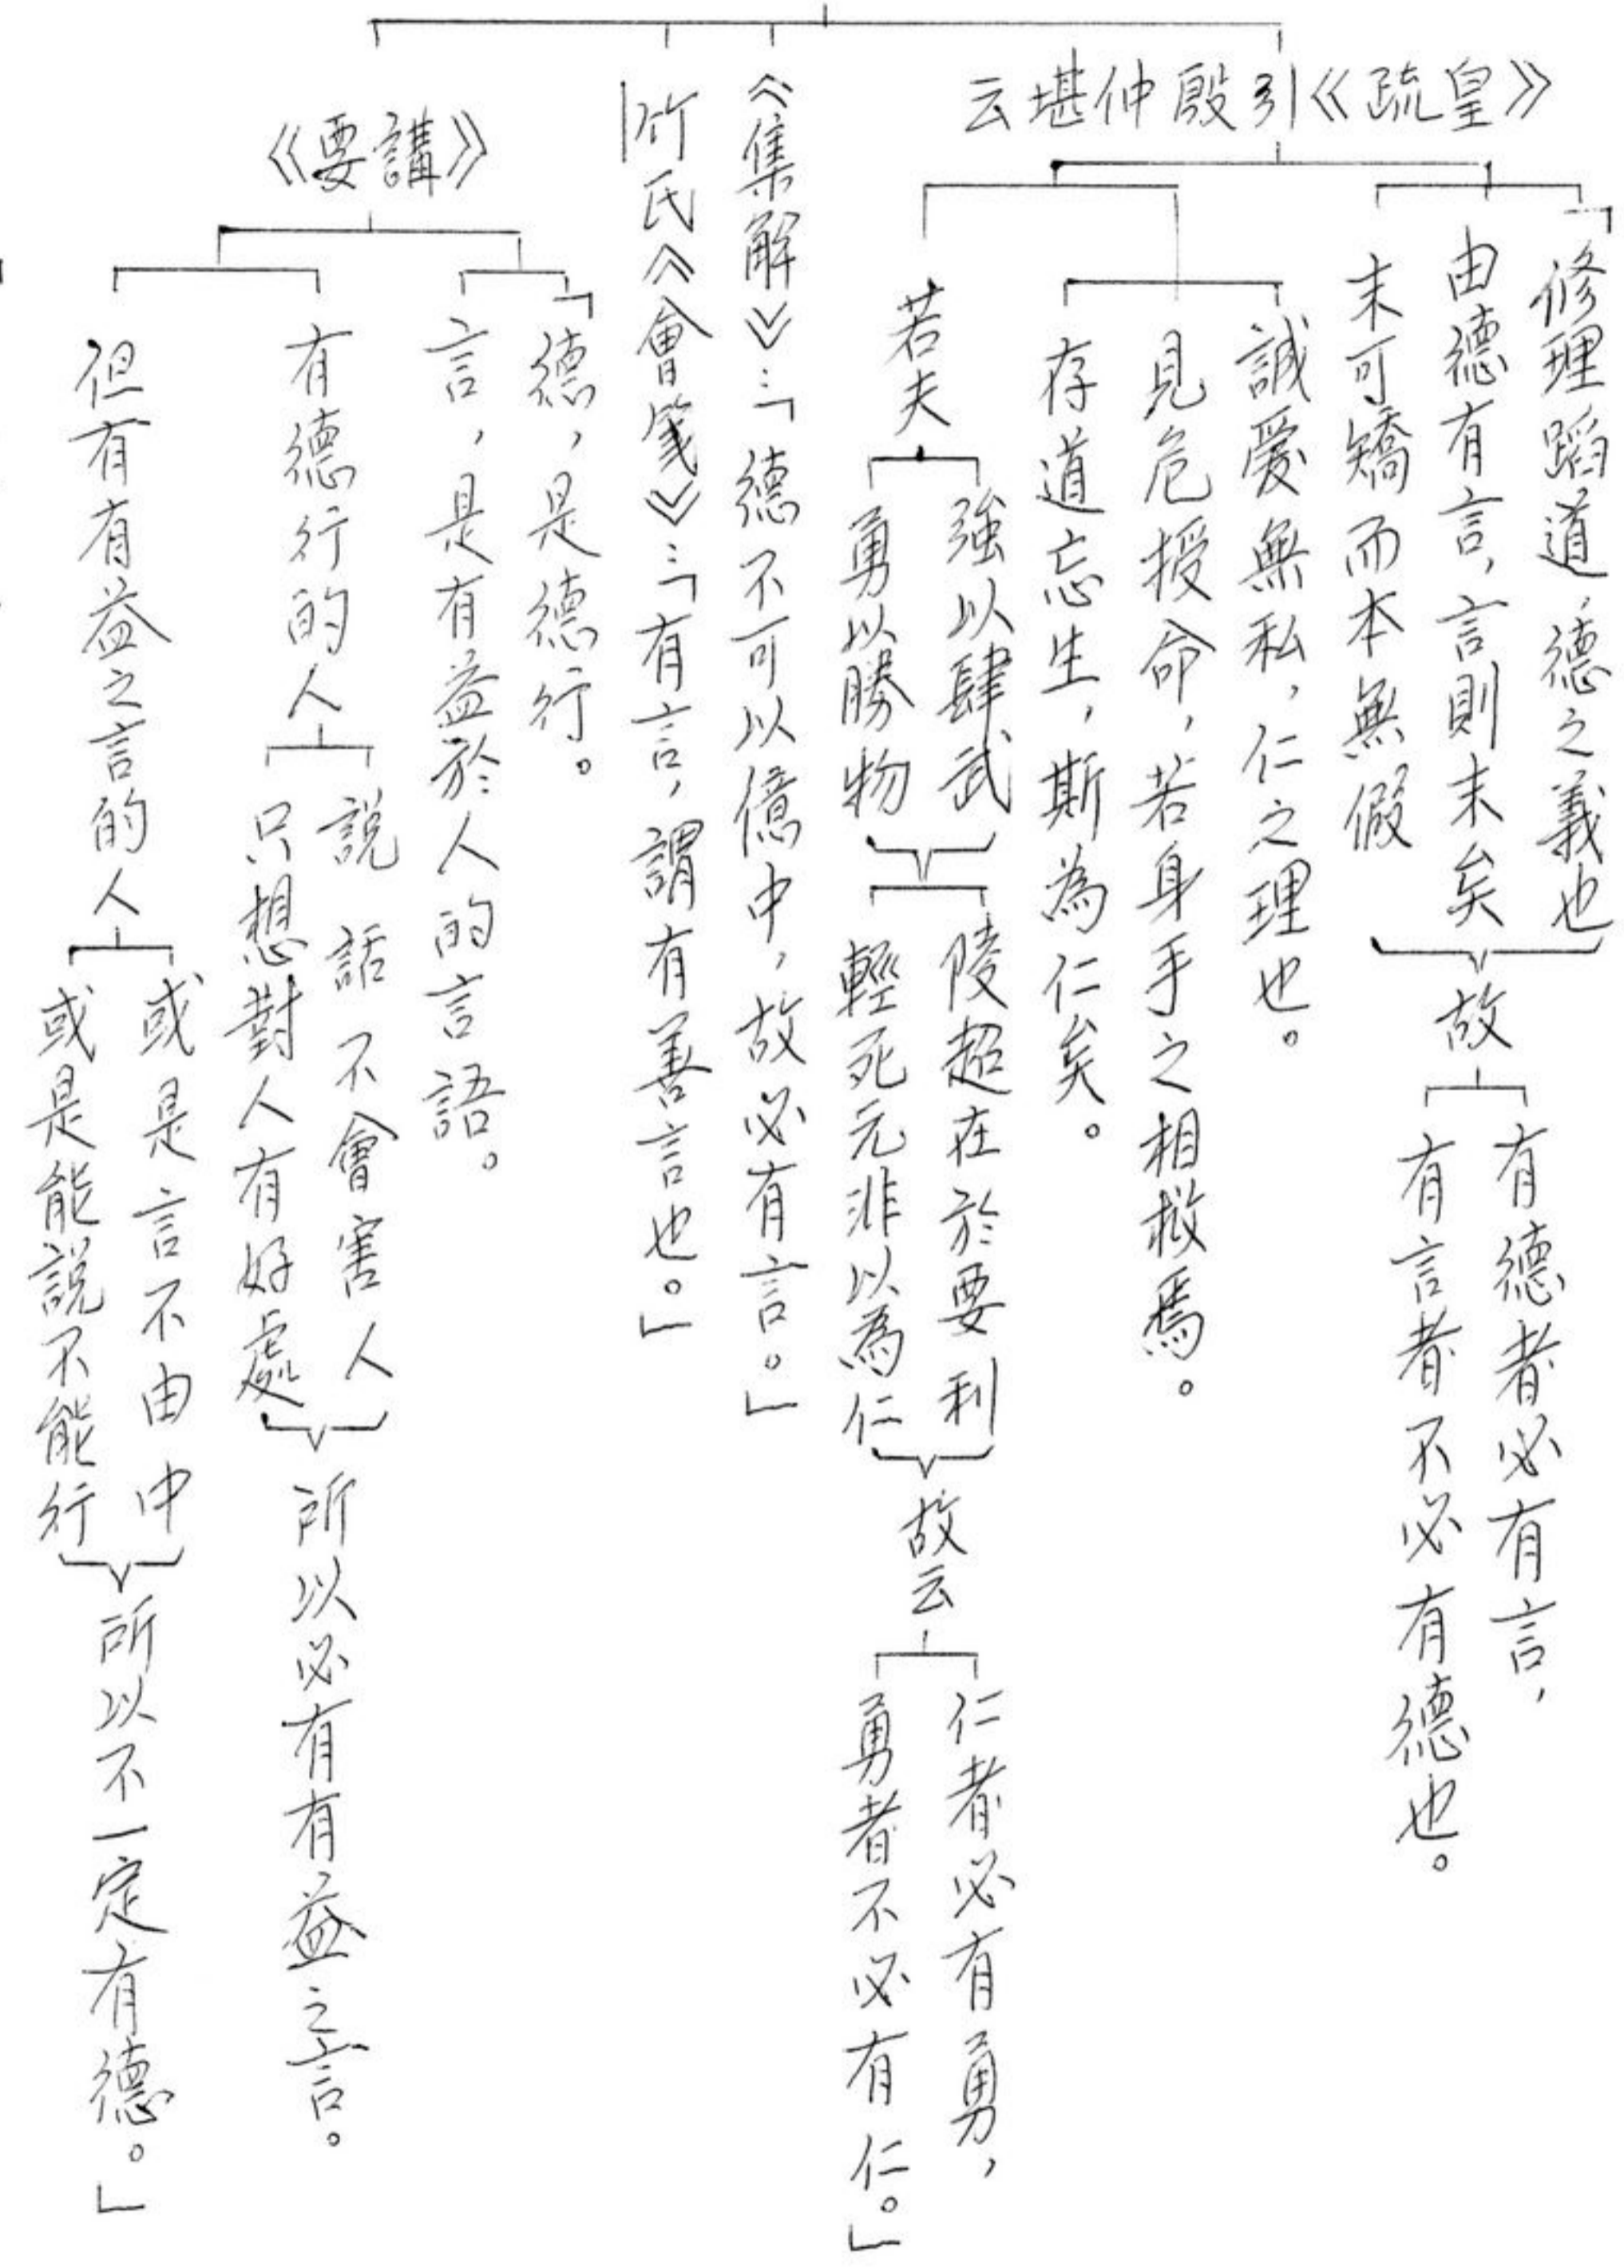 《皇疏》引殷仲堪云
「修理蹈道，德之義也
由德有言，言則末矣
末可矯而本無假
故
有德者必有言，
有言者不必有德也。
誠愛無私，仁之理也。
見危授命，若身手之相救焉。
存道忘生，斯為仁矣。
若夫
強以肆武
勇以勝物
陵超在於要利
輕死元非以為仁
故云
仁者必有勇，
勇者不必有仁。」
《集解》：「德不可以億中，故必有言。」
竹氏《會箋》：「有言，謂有善言也。」
《講要》
「德，是德行。
言，是有益於人的言語。
有德行的人
說話不會害人
只想對人有好處
所以必有有益之言。
但有有益之言的人
或是言不由中
或是能說不能行
所以不一定有德。」